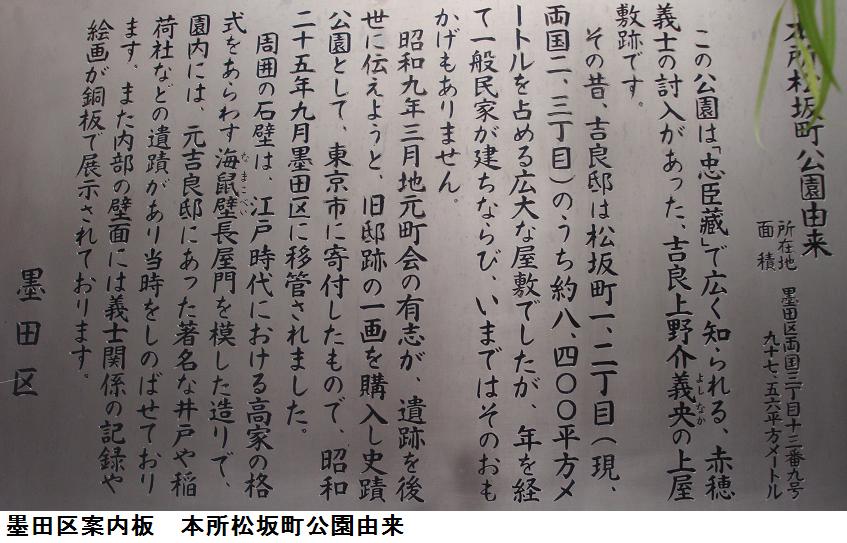 本所松坂町公園由来
所在地 墨田区両国三丁目十三番九号
面積 九十七、五六平方メートル
この公園は「忠臣蔵」で広く知られる、赤穂
義士の討入があった、吉良上野介義央の上屋
よしなか
敷跡です。
その昔、吉良邸は松坂町一、二丁目（現、
両国二、三丁目）のうち約八、四〇〇平方メ
ートルを占める広大な屋敷でしたが、年を経
て一般民家が建ちならび、いまではそのおも
かげもありません。
昭和九年三月地元町会の有志が、遺跡を後
世に伝えようと、旧邸跡の一画を購入し史蹟
公園として、東京市に寄付したもので、昭和
二十五年九月墨田区に移管されました。
周囲の石壁は、江戸時代における高家の格
式をあらわす海鼠壁長屋門を模した造りで、
なまこべい
園内には、元吉良邸にあった著名な井戸や稲
荷社などの遺蹟があり当時をしのばせており
ます。また内部の壁面には義士関係の記録や
絵画が銅板で展示されております。
墨田区
墨田区案内板 本所松坂町公園由来